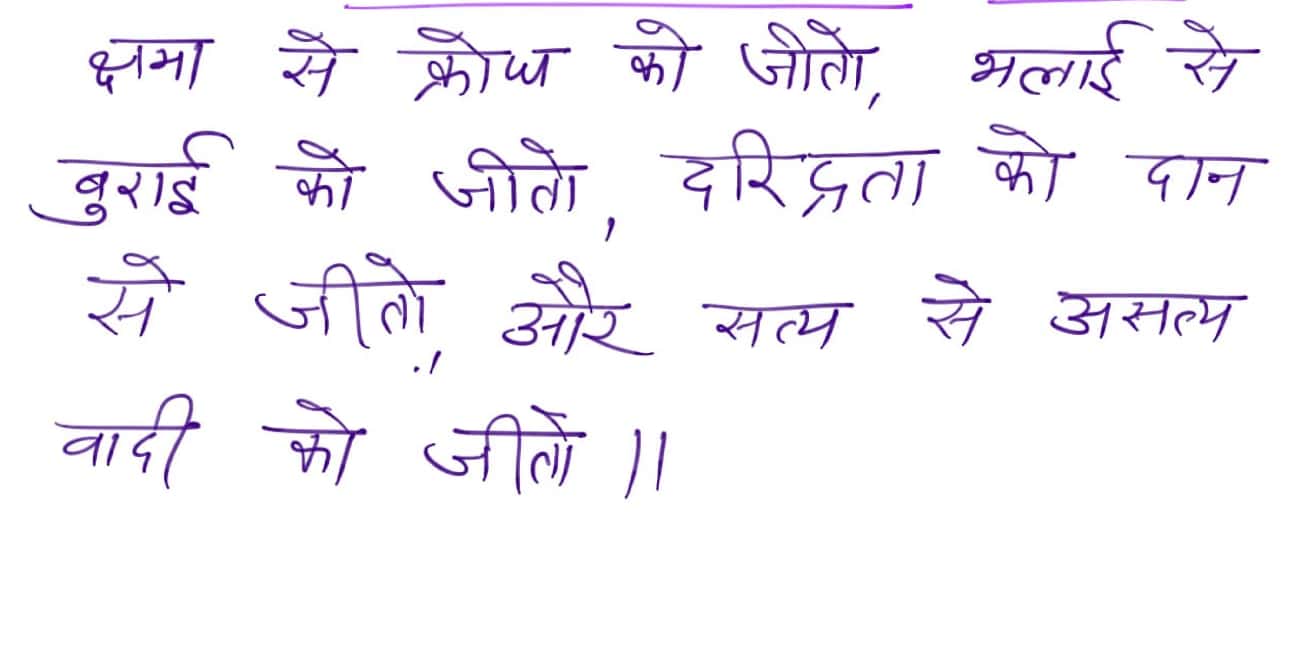 क्षमा से क्रोध को जीतो, भलाई से
बुराई को जीतो, दरिद्रता को दान
से जीतो, और सत्य से असत्य
वादी को जीतो ||